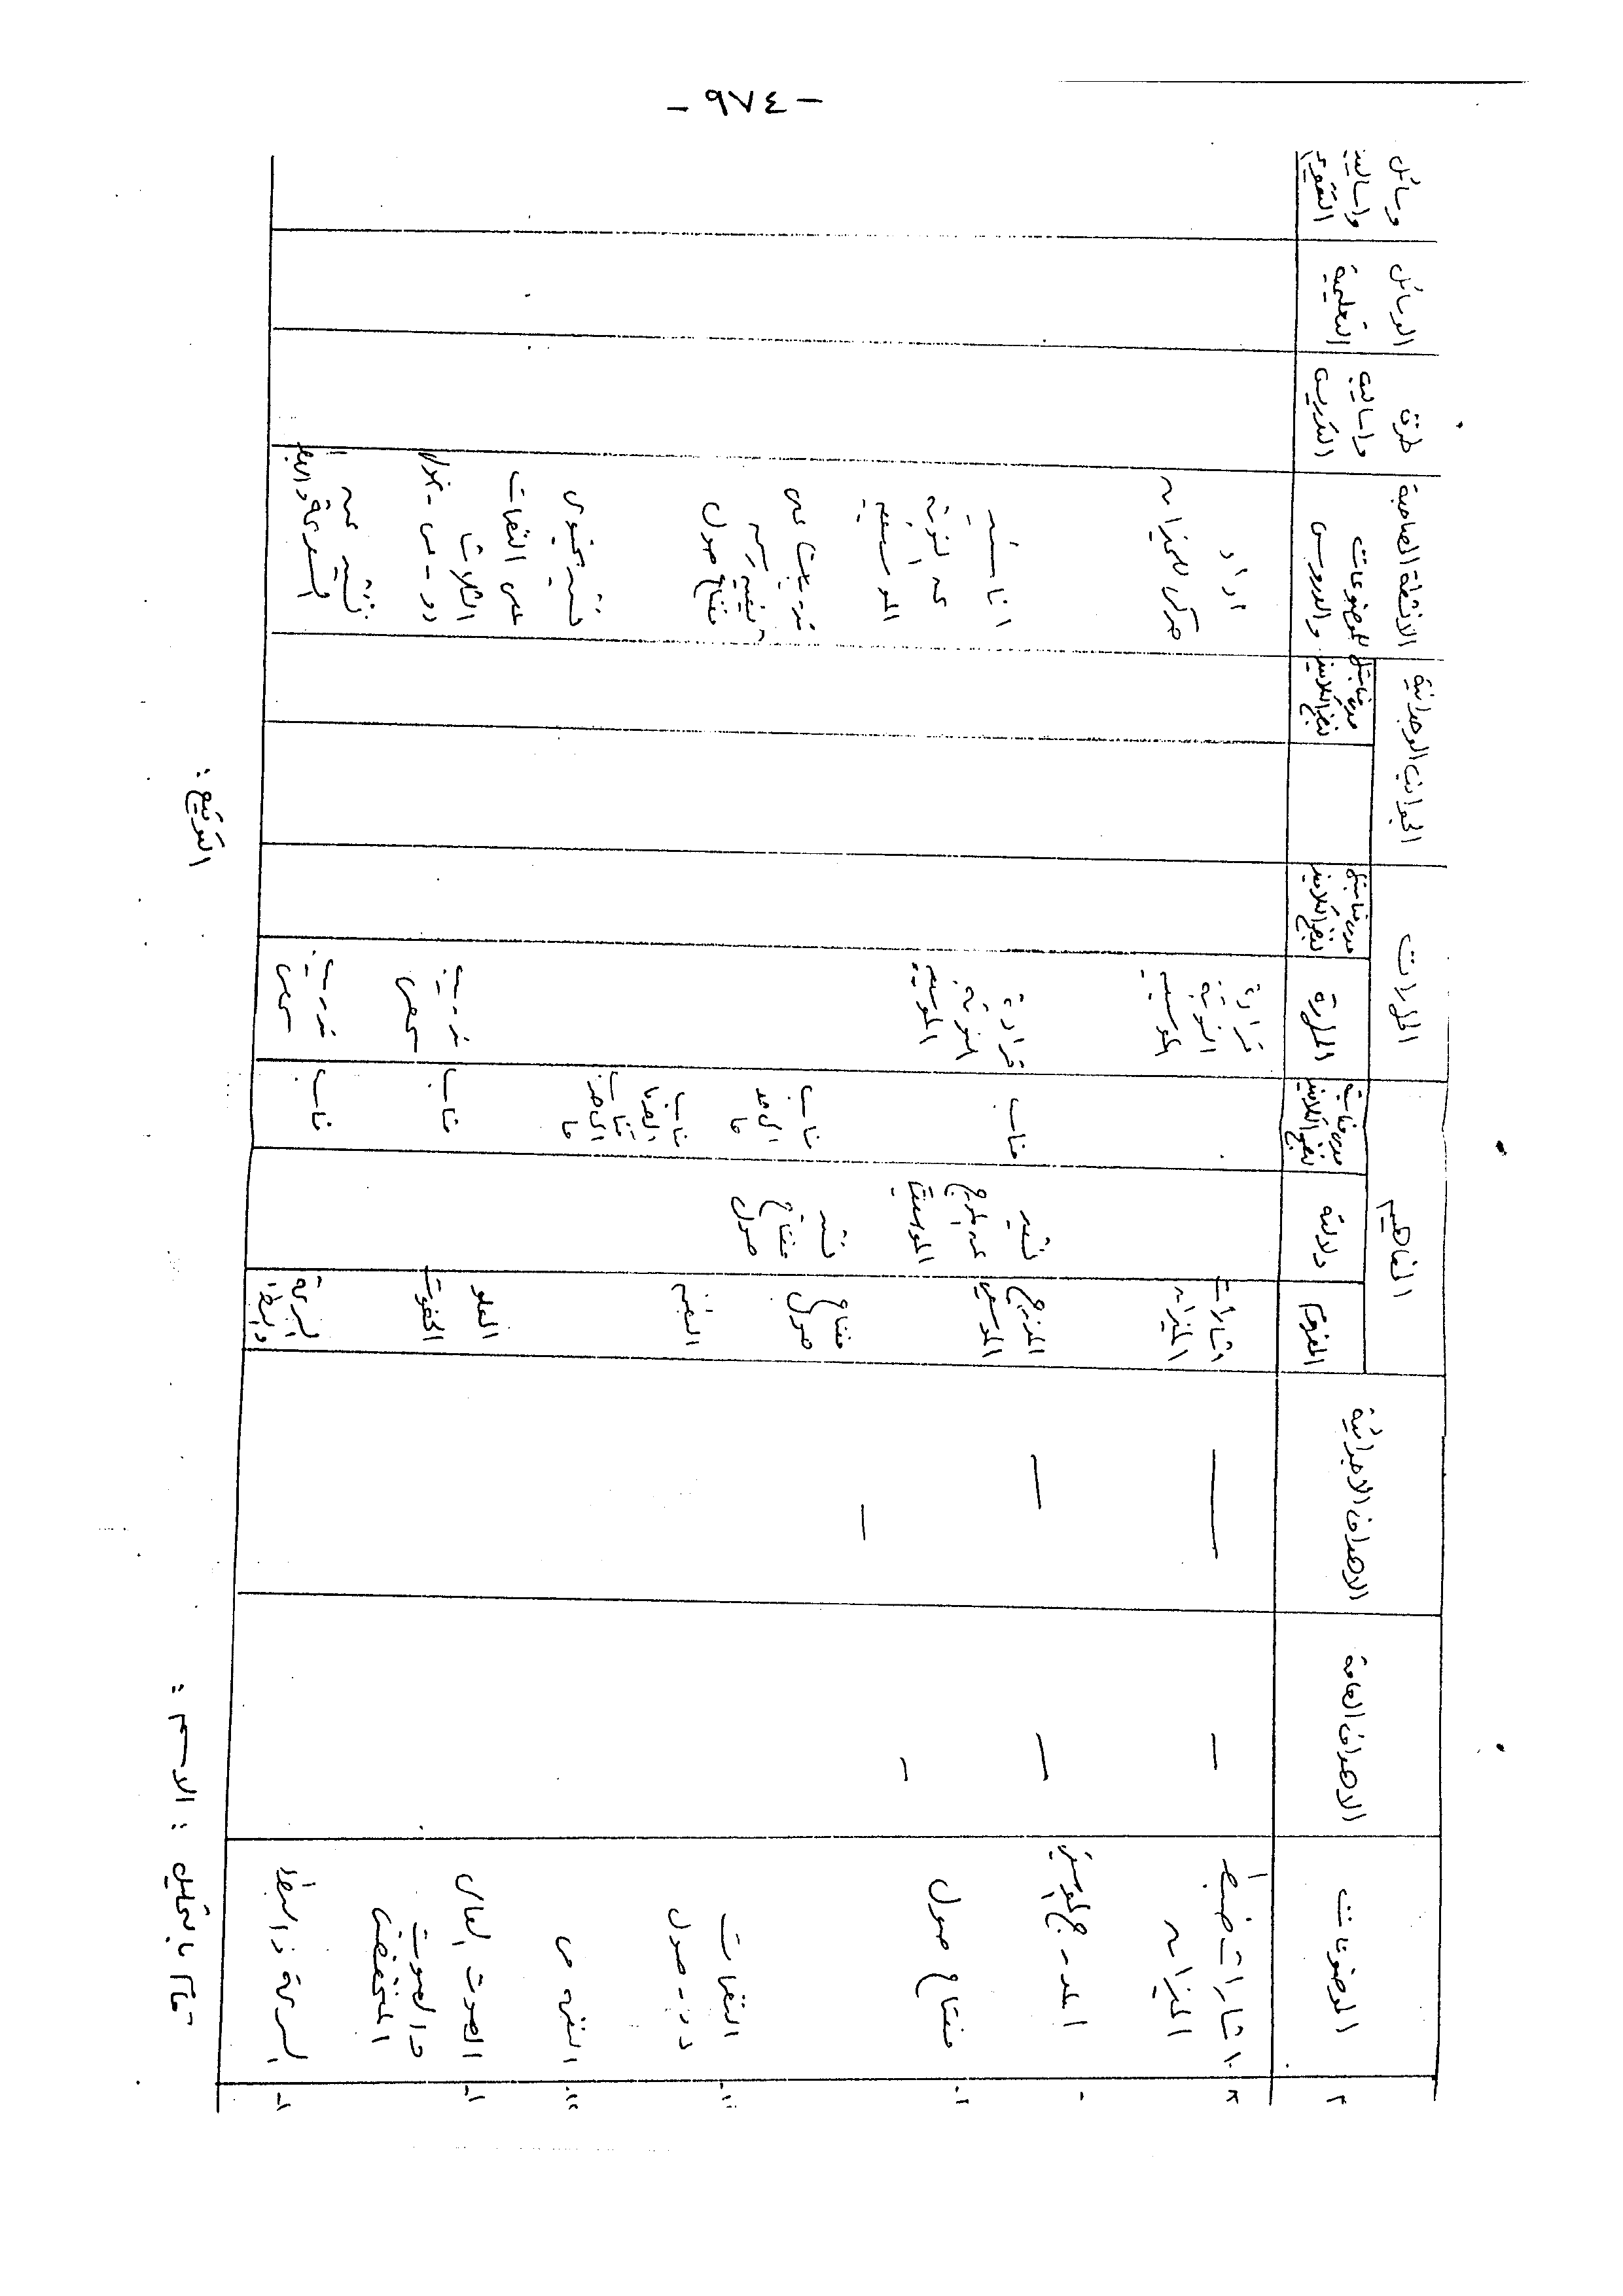 - ٤٨٩ -
م
الموضوعات
الاهداف العامة
الاهداف الاجرائية
المفاهيم
المفهوم
دلالته
مدى مناسبته
لنضج التلاميذ
المهارات
المهارة
مدى مناسبتها
لنضج التلاميذ
الجوانب الوجدانية
مدى مناسبتها
لنضج التلاميذ
الانشطة المصاحبة
للموضوعات
والدروس
طرق
واساليب
التدريس
الوسائل
التعليمية
وسائل
واساليب
التقويم
اشارات ضبط
الميزان
—
—
اشارات
الميزان
قراءة
النوتة
الموسيقية
اداء
حركى للميزان
المدرج الموسيقى
—
—
المدرج
الموسيقى
نشيد
عن المدرج
الموسيقى
مناسب
قراءة
النوتة
الموسيقية
اناشيد
عن النوتة
الموسيقية
مفتاح صول
—
—
مفتاح
صول
نشيد
مفتاح
صول
مناسب
الى حد
ما
تدريبات على
مفتاح صول
النغمات
النغم
مناسب
نشيد يحتوى
على النغمات
الثلاث
الصوت العالى
والصوت
المنخفض
العلو
الخفوت
مناسب
تدريب
سمعى
السرعة والبطء
السرعة
والبطء
مناسب
تدريب
سمعى
نشيد عن
السرعة والبطء
قام بالتحليل : الاسم :
التوقيع :